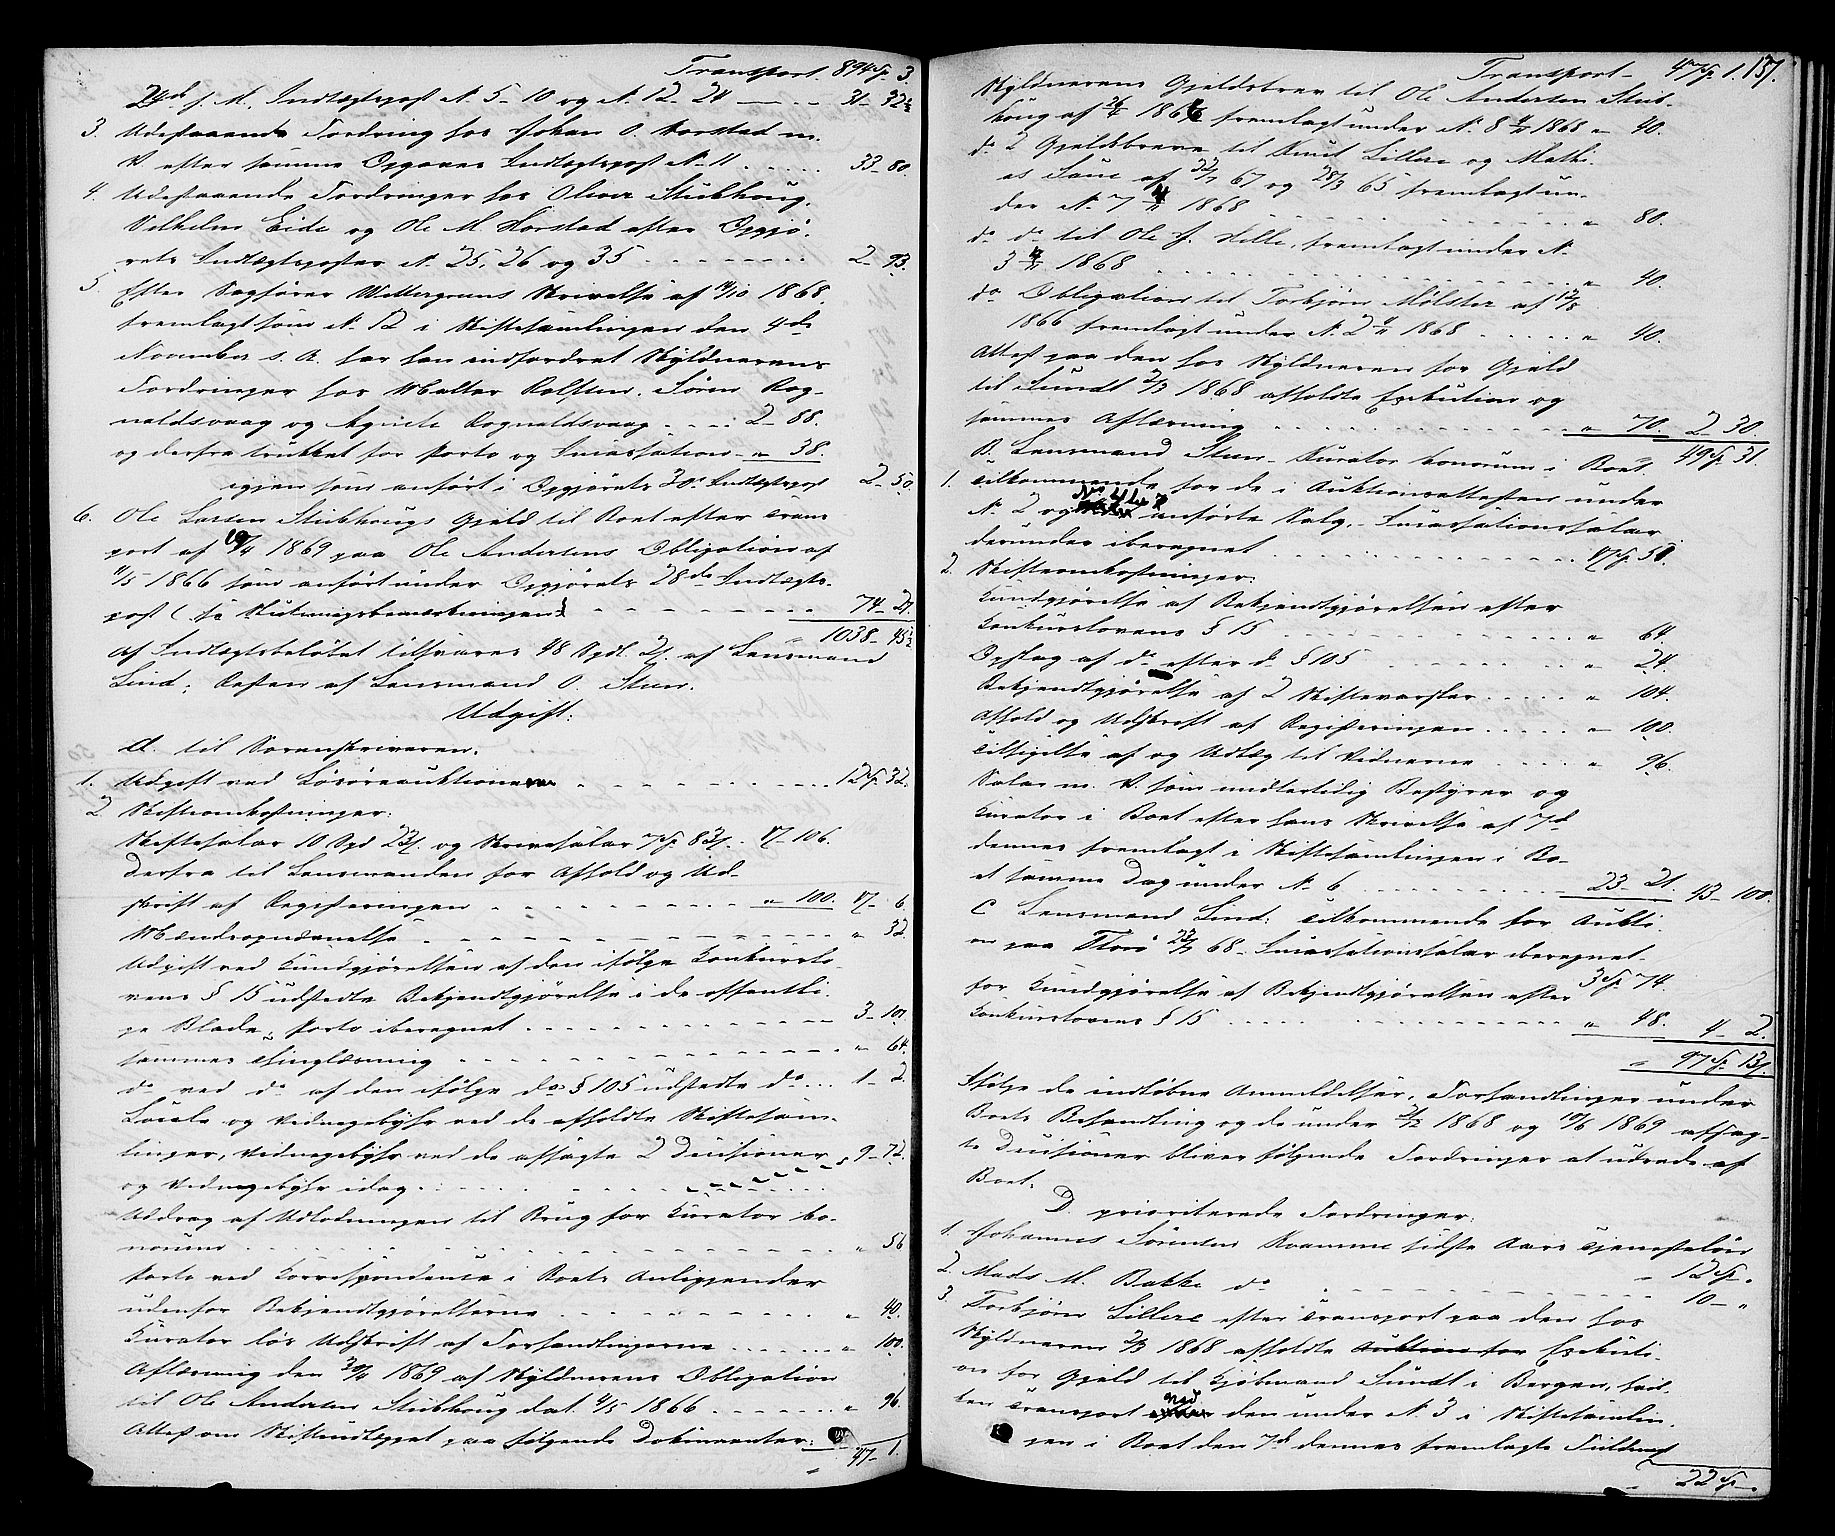 Transport. 894 Sp. 3.
24de s. M., Indtægtspost N. 5-10 og N. 12-24 — 31-32½
3. Udestaaende Fordring hos Johan O. Horstad m.
V. efter samme Opgaves Indtægtspost N. 11 . . . . . 33-80.
4. Udestaaende Fordringer hos Oliver Stubhoug,
Vilhelm Eide og Ole M. Horstad efter Opgjø-
rets Indtægtsposter N. 25, 26 og 35 . . . . . 2-93.
5. Efter Sagfører Wettergreens Skrivelse af /10 1868
fremlagt som N. 12 i Skiftesamlingen den 4de
November s. A. har han indfordret Skyldnerens
Fordringer hos Walter Rolfsen, Søren Rog-
naldsvaag og Agnete Rognaldsvaag . . . . 2-88.
og derfra trukket for Porto og Incassation - " 38.
igjen som anført i Opgjørets 30te Indtægtspost 2-50.
6. Ole Larsen Stubhougs Gjæld til Boet efter Trans
port af 19/4 1869 paa Ole Andersens Obligation af
4/5 1866 som anført under Opgjørets 28de Indtægts-
post (se Slutningsbemærkningen) - - - - - 74-21.
1038-45½
Af Indtægtsbeløbet tilsvares 48 Spdl. 21 af Lensmand
Lind; Resten af Lensmand O. Steen.
Udgift:
A. til Sorenskriveren.
1. Udgift ved Løsøreauktionerne . . . . . 12 Sp. 32.
2. Skifteomkostninger:
Skiftesalær 10 Spd 23 s. og Skriversalær 7 Sp. 83 s. - 17-106.
Derfra til Lensmanden for Afhold og Ud-
skrift af Registeringen - - - - - " 100. 17-6.
Mændsopnævnelse - - - - - " 32.
Udgift ved Kundgjørelsen af den ifølge Konkurslo-
vens § 15 udstedte Bekjendtgjørelse i de offentli-
ge Blade, Porto iberegnet . . . . . 3-101.
sammes Thinglæsning - - - - - " 64.
do ved do af den ifølge do § 105 udstedte do . . . 1-2.
Locale og Vidnegebyhr ved de afholdte Skiftesam-
linger, Vidnegebyhr ved de afsagte 2 Decisioner
og Vidnegebyhr idag . . . . . 9-72.
Uddrag af Udlodningen til Brug for Kurator bo-
norum . . . . . " 56
Porto ved Korrespondence i Boets Anliggender
udenfor Bekjendtgjørelserne . . . . . " 40.
Kurator løs Udskrift af Forhandlingerne . . . . . " 100.
Aflæsning den 20/4 1869 af Skyldnerens Obligation
til Ole Andersen Stubhoug dat. 4/5 1866 . . . . . " 96.
Attest om Skifteudlægget paa følgende Dokumenter:
47-1.
Transport - 47 Sp. 1. 157.
Skyldnerens Gjældsbrev til Ole Andersen Stub-
houg af 1866 fremlagt under N. 8 1868 " 40.
do 2 Gjældsbreve til Knud Lillere og Mathi-
as Saue af 67 og 28/3 65 fremlagt un-
der N. 7 1868 . . . . . " 80.
do do til Ole J. Hille, fremlagt under N.
3 1868 . . . . . " 40.
do Obligation til Torbjørn Mølster af
1866 fremlagt under N. 2 1868 . . . . . " 40.
Attest paa den hos Skyldneren for Gjæld
til Sundt 1868 afholdte Exekution og
sammes Aflæsning . . . . . " 70. 2 30.
49 Sp. 31.
B. Lensmand Steen - Kurator bonorum i Boet
1. Tilkommende for de i Auktionsattesten under
N. 2 og No 4 anførte Salg, - Incassationssalær
derunder iberegnet . . . . . 17 Sp. 51.
2. Skifteomkostninger:
Kundgjørelse af Bekjendtgjørelsen efter
Konkurslovens § 15 . . . . . " 64.
Opslag af do efter do § 105 . . . . . " 24.
Bekjendtgjørelse af 2 Skiftevarsler . . . . " 104.
Afhold og Udskrift af Registeringen . . . . . " 100.
Tilsigelse af og Udlæg til Vidnerne . . . . " 96.
Salær m. V. som midlertidig Bestyrer og
Kurator i Boet efter hans Skrivelse af 7de
dennes fremlagt i Skiftesamlingen i Bo-
et samme Dag under N. 6 . . . . . 23-21. 43-100.
C. Lensmand Lind: Tilkommende for Aukti-
on paa Florø 68 - Incassationssalær iberegnet - 3 Sp. 74.
for Kundgjørelse af Bekjendtgjørelsen efter
Konkurslovens § 15 . . . . . " 48. 4-2.
97 Sp. 13 s.
Ifølge de indløbne Anmeldelser, Forhandlinger under
Boets Behandling og de under 1868 og 1869 afsag-
te Decisioner bliver følgende Fordringer at udrede af
Boet.
D. prioriterede Fordringer:
1. Johannes Sørensen Kvamme sidste Aars Tjenesteløn
12 Sp. "
2. Mads M. Bakke do . . . . . 10-"
3. Torbjørn Lillere efter Transport paa den hos
Skyldneren 1868 afholdte Auktion for Exekuti-
on for Gjæld til Kjøbmand Sundt i Bergen, hvil-
ken Transport med den under N. 3 i Skiftesamlin-
gen i Boet den 7de dennes fremlagte
22 Sp. "